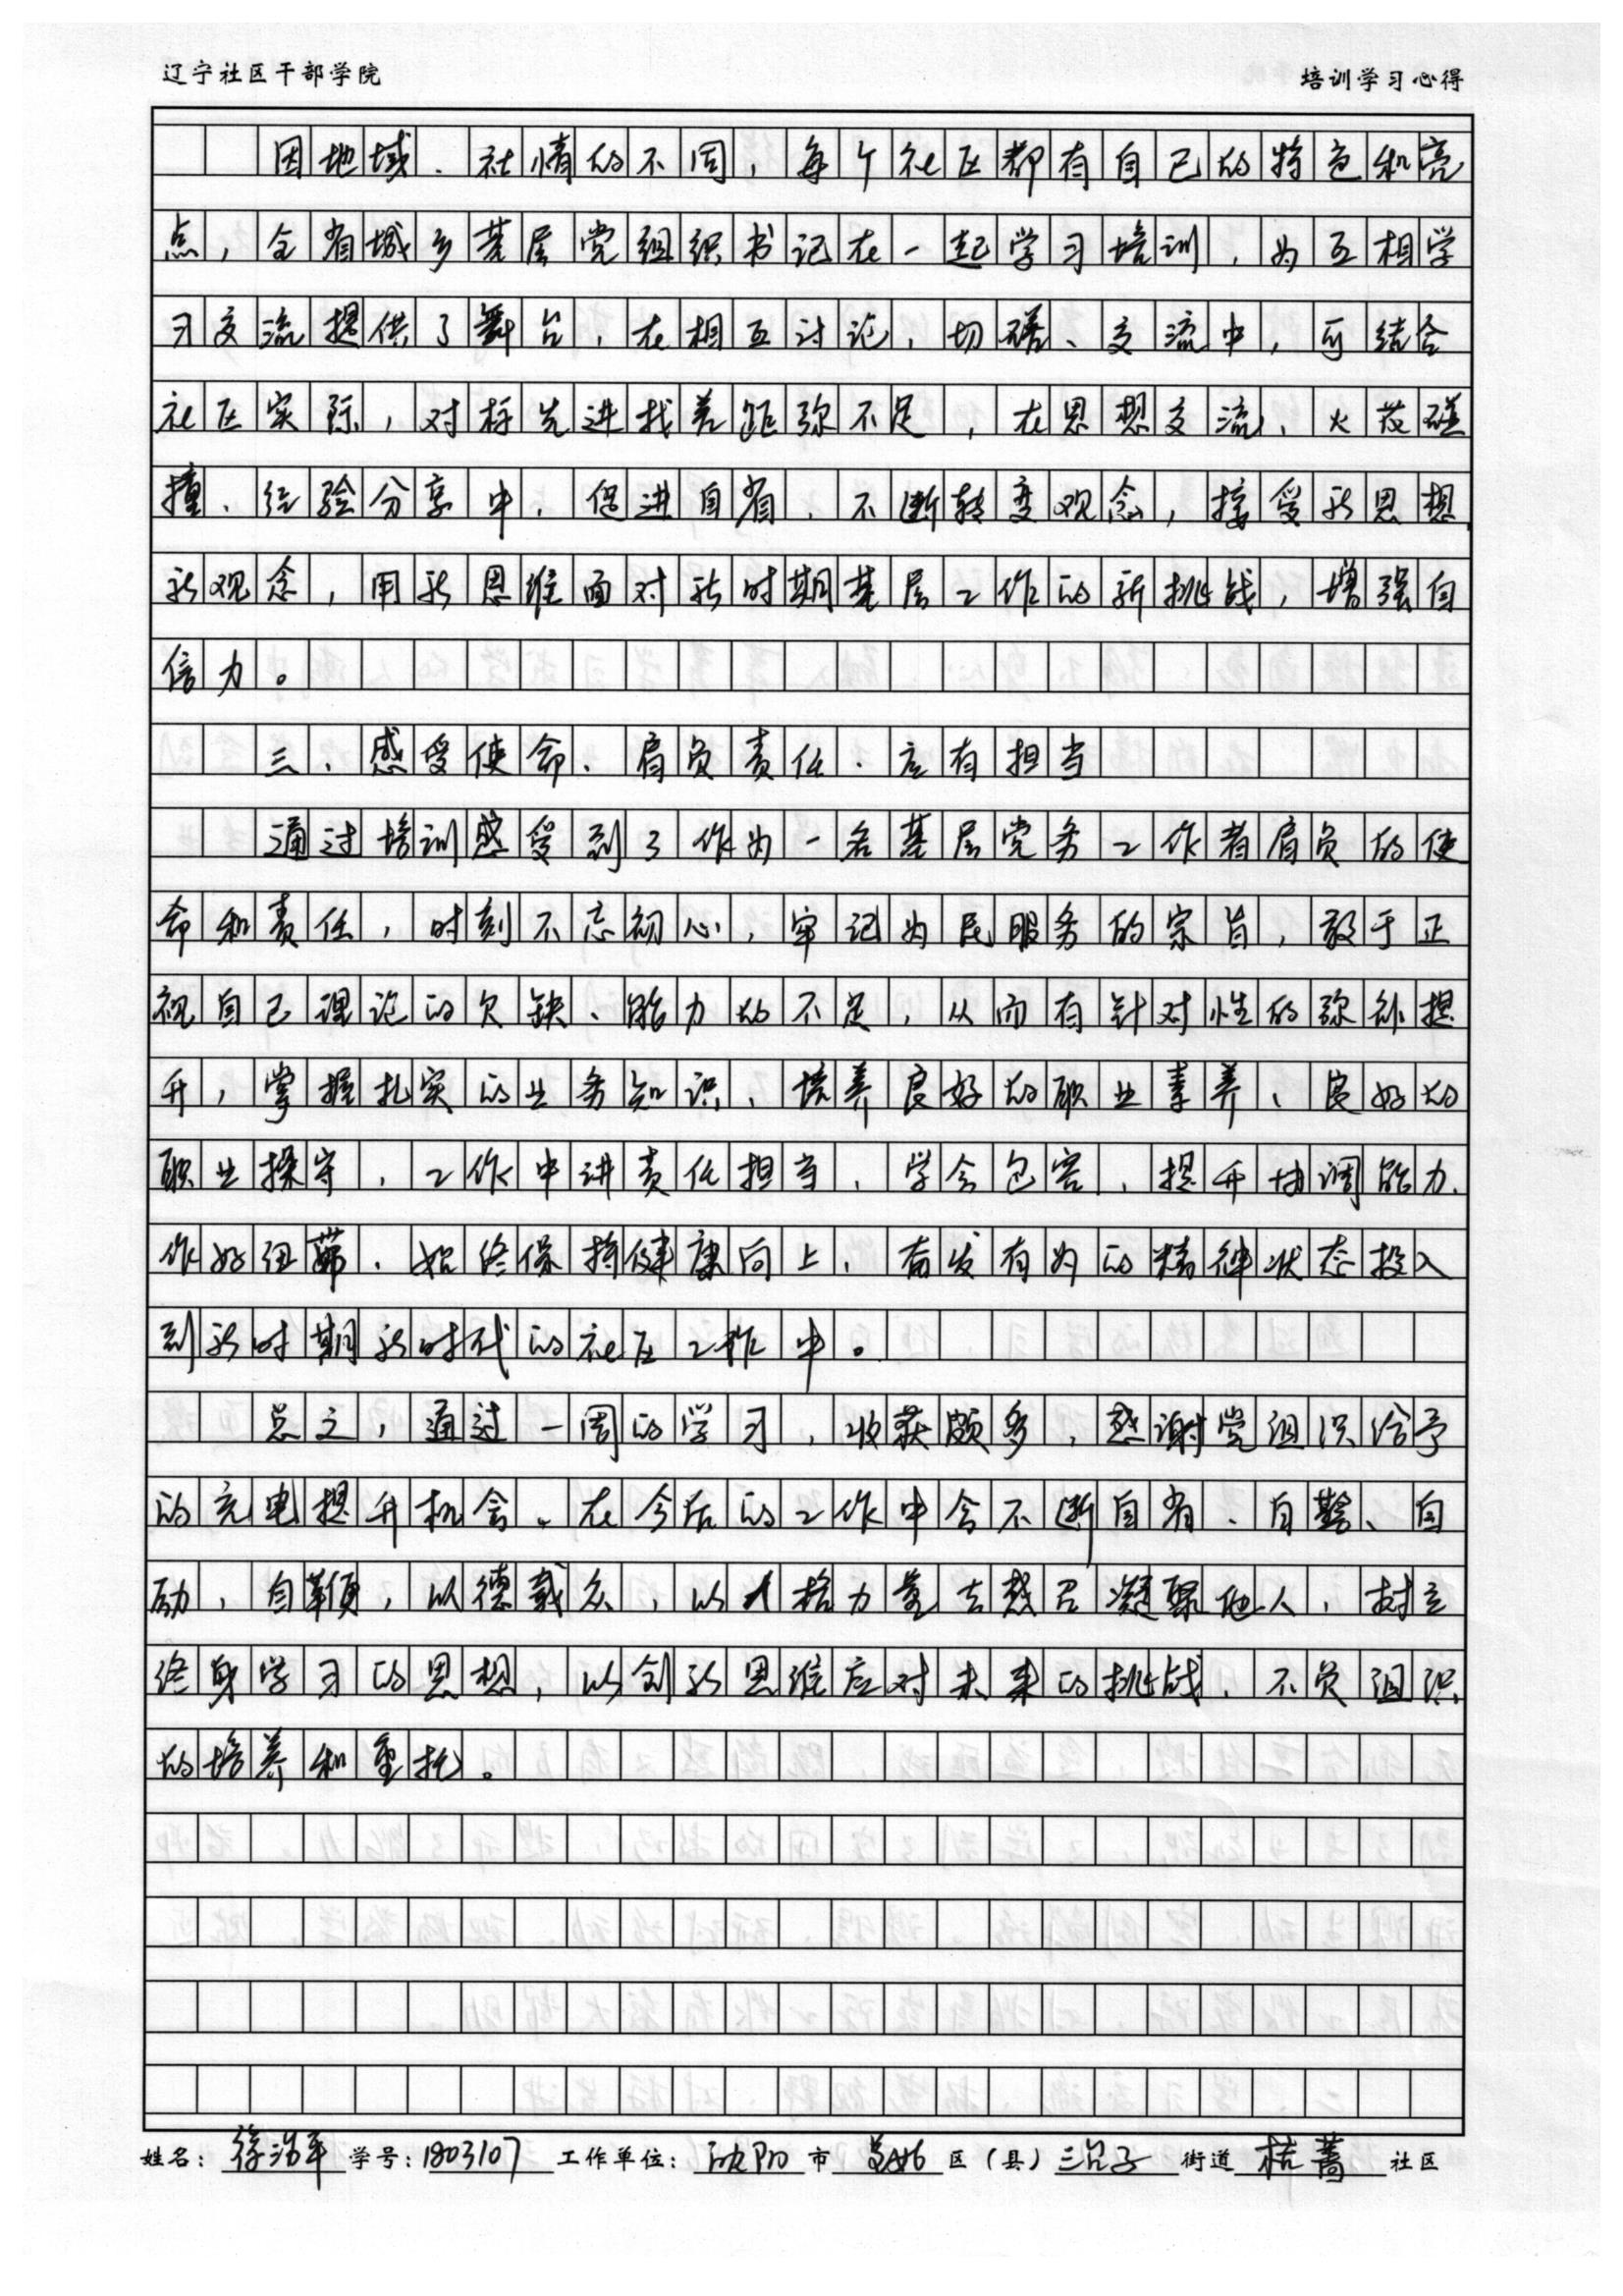 辽宁社区干部学院
培训学习心得
因地域、社情的不同，每个社区都有自己的特色和亮
点，全省城乡基层党组织书记在一起学习培训，为互相学
习交流提供了舞台，在相互讨论，切磋、交流中，可结合
社区实际，对标先进找差距弥不足，在思想交流、火花碰
撞、经验分享中，促进自省，不断转变观念，接受新思想
新观念，用新思维面对新时期基层工作的新挑战，增强自
信力。
三、感受使命、肩负责任、应有担当
通过培训感受到了作为一名基层党务工作者肩负的使
命和责任，时刻不忘初心，牢记为民服务的宗旨，敢于正
视自己理论的欠缺、能力的不足，从而有针对性的弥补提
升，掌握扎实的业务知识、培养良好的职业素养、良好的
职业操守，工作中讲责任担当，学会包容，提升协调能力，
作好纽带，始终保持健康向上，奋发有为的精神状态投入
到新时期新时代的社区工作中。
总之，通过一周的学习，收获颇多，感谢党组织给予
的充电提升机会。在今后的工作中会不断自省、自警、自
励，自鞭，以德载众，以人格力量去感召凝聚他人，树立
终身学习的思想，以创新思维应对未来的挑战，不负组织
的培养和重托。
姓名：徐治平 学号：1803107 工作单位：沈阳市 皇姑区（县）三台子街道 社区